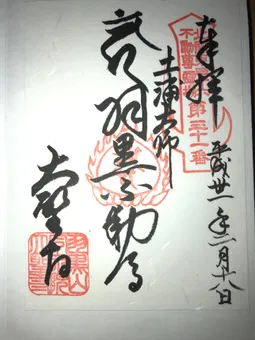 奉拝
不動尊霊場
第三十一番
平成廿一年二月十八日
土浦大師
羽黒不動尊
大聖寺